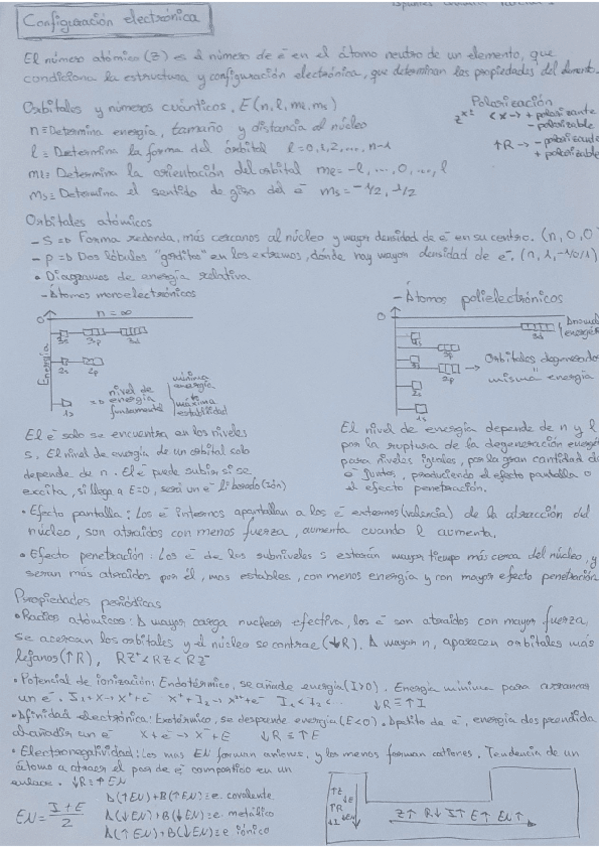 Configuración electrónica
El número atómico (Z) es el número de e⁻ en el átomo neutro de un elemento, que
condiciona la estructura y configuración electrónica, que determinan las propiedades del elemento.
Orbitales y números cuánticos. E(n, l, ml, ms)
n = Determina energía, tamaño y distancia al núcleo
l = Determina la forma del órbital l=0, 1, 2, ..., n-1
ml = Determina la orientación del orbital ml = -l, ..., 0, ..., l
ms = Determina el sentido de giro del e⁻ ms = -1/2, 1/2
Polarización
<x → + polarizante
- polarizable
↑R → - polarizante
+ polarizable
Orbitales atómicos
- S => Forma redonda, más cercanos al núcleo y mayor densidad de e⁻ en su centro. (n, 0, 0
- p => Dos lóbulos "gorditos" en los extremos, dónde hay mayor densidad de e⁻. (n, 1, -1/0/1)
• Diagramas de energía relativa
- Átomos monoelectrónicos
n = ∞
0
Energía
3s 3p 3d
2s 2p
1s => nivel de energía fundamental
mínima energía
máxima estabilidad
El e⁻ solo se encuentra en los niveles
s. El nivel de energía de un orbital solo
depende de n. El e⁻ puede subir si se
excita, si llega a E=0, será un e⁻ liberado (ión)
- Átomos polielectrónicos
0
3d
3p
2p
2s
1s
→ Orbitales degenerados
misma energía
El nivel de energía depende de n y l
por la ruptura de la degeneración
para niveles iguales, por la gran cantidad d
e⁻ juntos, produciendo el efecto pantalla o
el efecto penetración.
• Efecto pantalla: Los e⁻ internos apantallan a los e⁻ externos (valencia) de la atracción del
núcleo, son atraídos con menos fuerza, aumenta cuando l aumenta.
• Efecto penetración: Los e⁻ de los subniveles s estarán mayor tiempo más cerca del núcleo, y
seran más atraídos por él, mas estables, con menos energía y con mayor efecto penetración
Propiedades periódicas
• Radios atómicos: A mayor carga nuclear efectiva, los e⁻ son atraídos con mayor fuerza,
se acercan los orbitales y el núcleo se contrae (↓R). A mayor n, aparecen orbitales más
lejanos (↑R), RZ⁺ < RZ < RZ⁻
• Potencial de ionización: Endotérmico, se añade energía (I>0). Energía mínima para arrancar
un e⁻. I₁ + X → X⁺ + e⁻ X⁺ + I₂ → X²⁺ + e⁻ I₁ < I₂ < ... ↓R = ↑I
• Afinidad electrónica: Exotérmico, se desprende energía (E<0). Apetito de e⁻, energía desprendida
al añadir un e⁻ X + e⁻ → X⁻ + E ↓R = ↑E
• Electronegatividad: Los mas EN forman aniones, y los menos forman cationes. Tendencia de un
átomo a atraer el par de e⁻ compartido en un
enlace. ↓R = ↑EN
EN = (I + E)/2
A(↑EN) + B(↑EN) = e covalente
A(↓EN) + B(↓EN) = e metálico
A(↑EN) + B(↓EN) = e iónico
↑Z
↑R ↓E
↓I
Z↑ R↓ I↑ E↑ EN↑